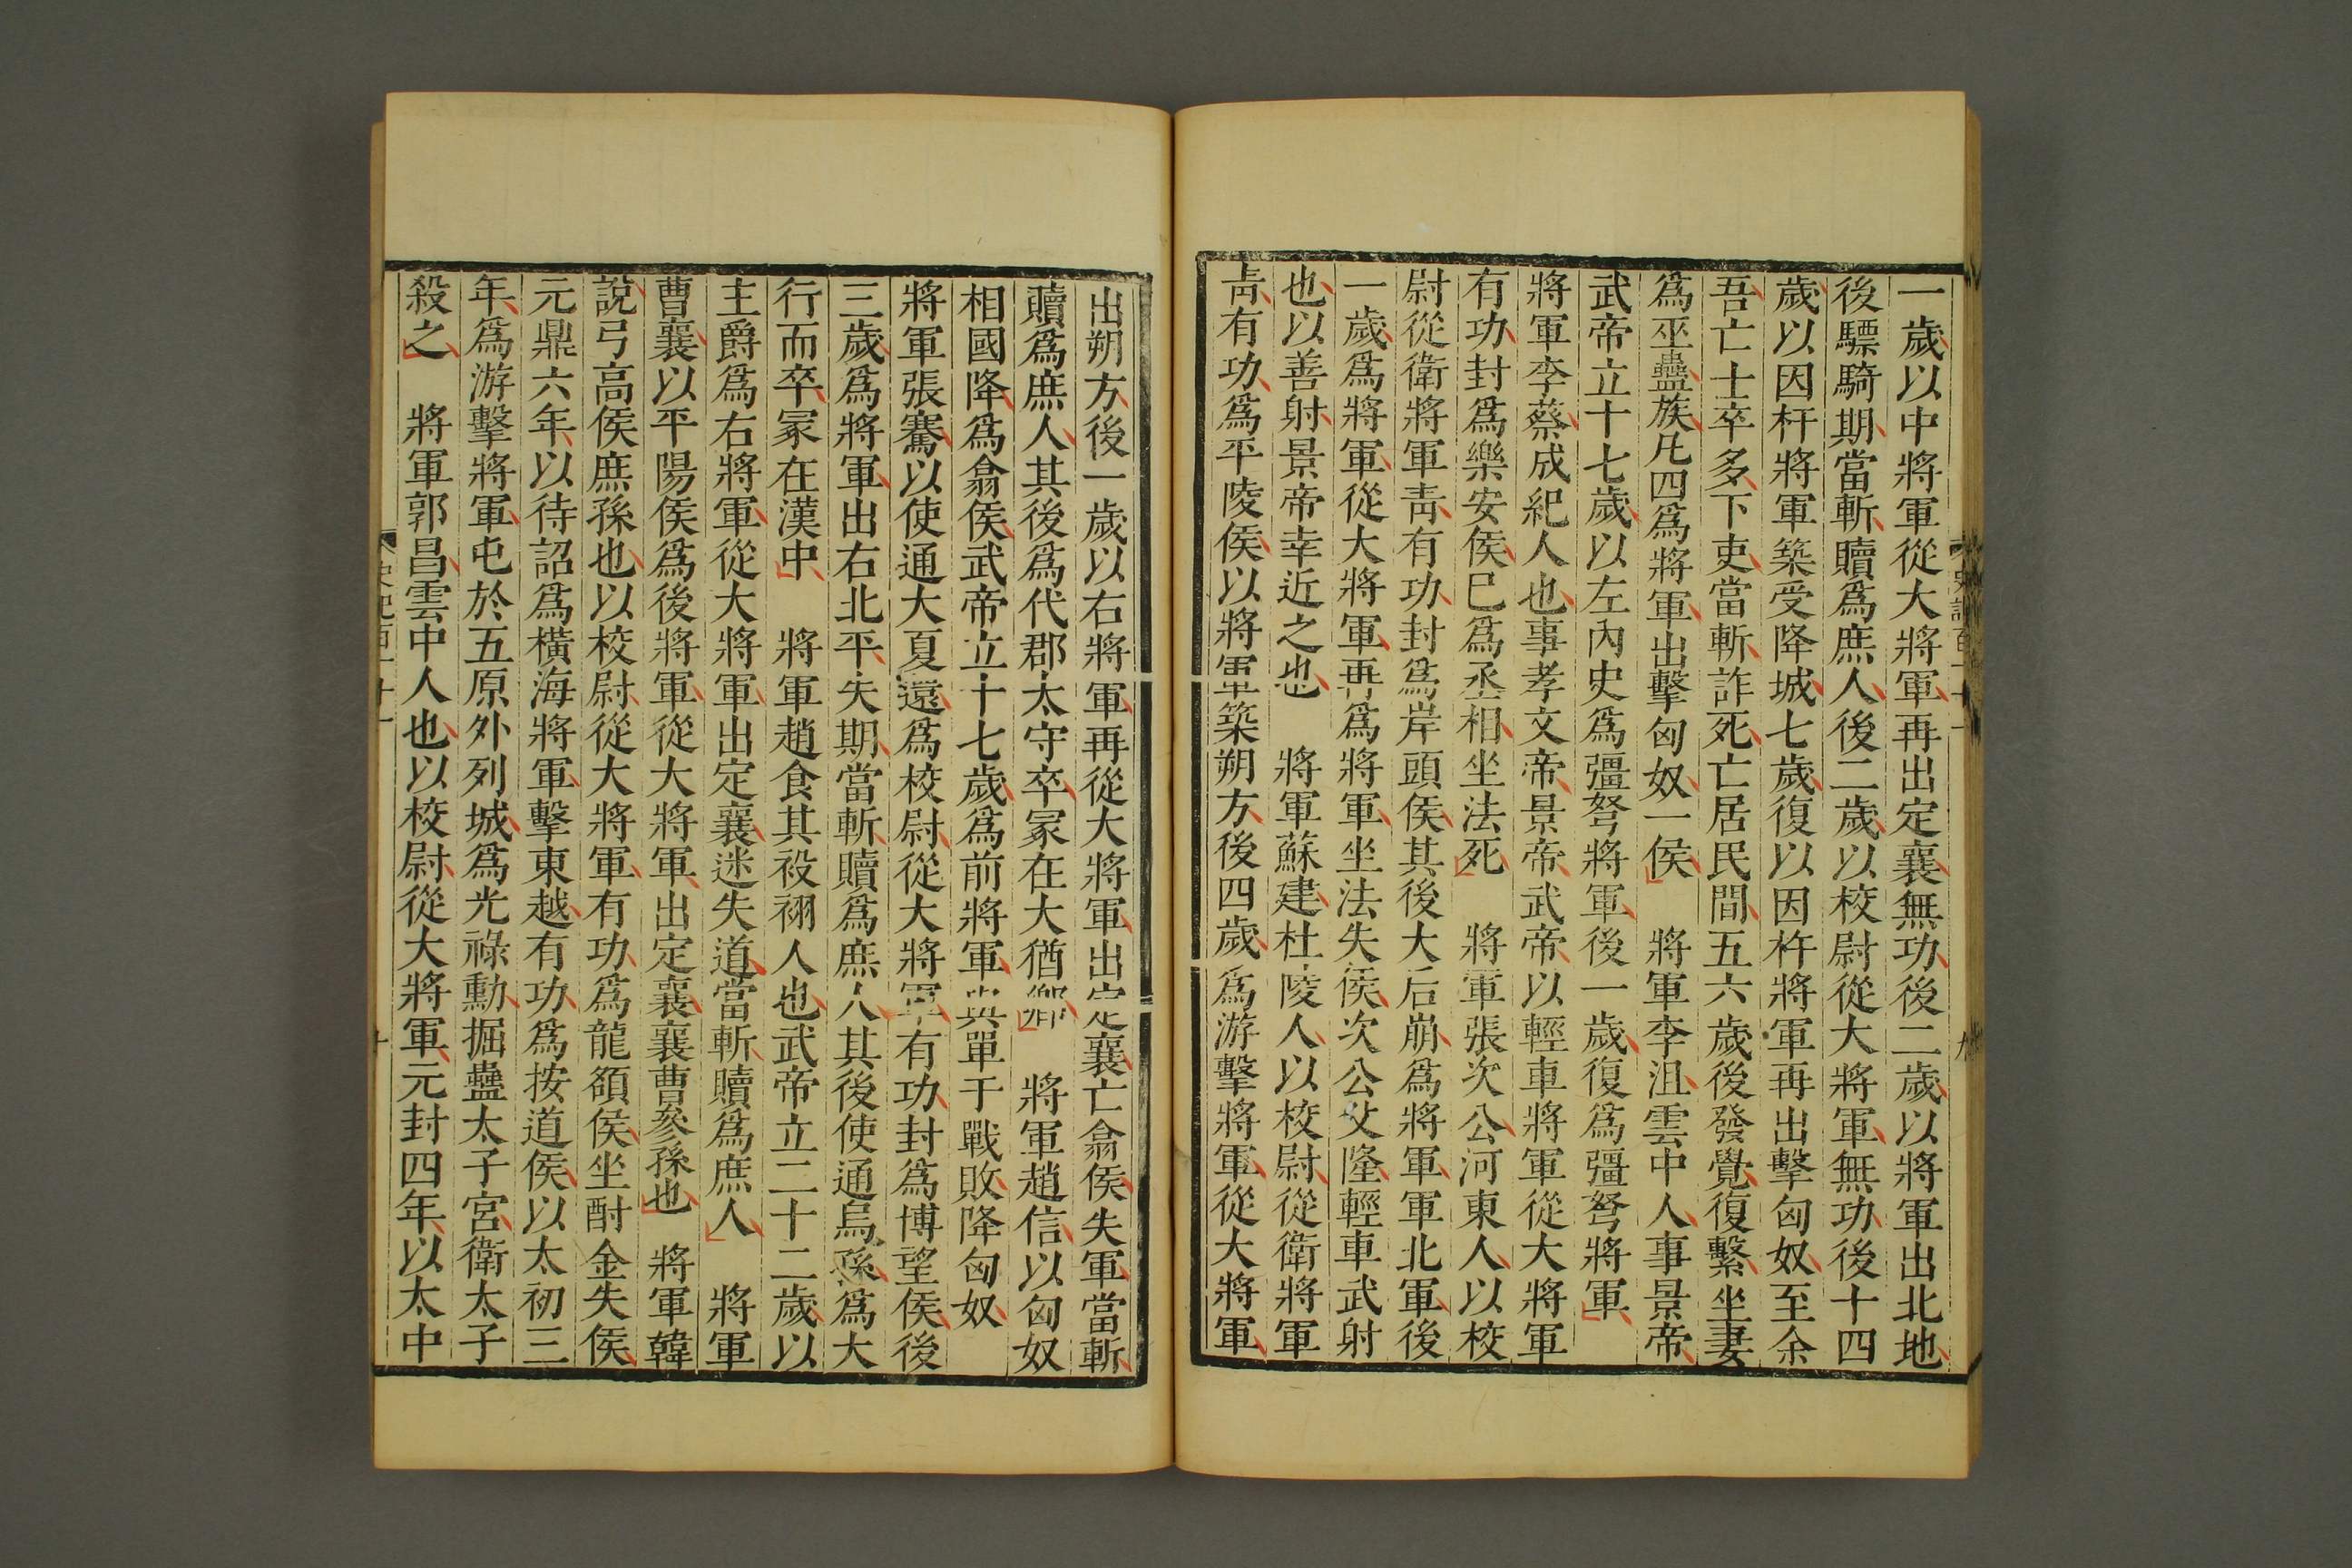 一歲以中將軍從大將軍再出定襄無功後二歲以將軍出北地
後驃騎期當斬贖爲庶人後二歲以校尉從大將軍無功後十四
歲以因杅將軍築受降城七歲復以因杅將軍再出擊匈奴至余
吾亡士卒多下吏當斬詐死亡居民間五六歲後發覺復繫坐妻
爲巫蠱族凡四爲將軍出擊匈奴一侯　將軍李沮雲中人事景帝
武帝立十七歲以左內史爲彊弩將軍後一歲復爲彊弩將軍
將軍李蔡成紀人也事孝文帝景帝武帝以輕車將軍從大將軍
有功封爲樂安侯巳爲丞相坐法死　將軍張次公河東人以校
尉從衛將軍靑有功封爲岸頭侯其後大后崩爲將軍軍北軍後
一歲爲將軍從大將軍再爲將軍坐法失侯次公父隆輕車武射
也以善射景帝幸近之也　將軍蘇建杜陵人以校尉從衛將軍
靑有功爲平陵侯以將軍築朔方後四歲爲游擊將軍從大將軍
出朔方後一歲以右將軍再從大將軍出定襄亡翕侯失軍當斬
贖爲庶人其後爲代郡太守卒冢在大猶鄉　將軍趙信以匈奴
相國降爲翕侯武帝立十七歲爲前將軍與單于戰敗降匈奴
將軍張騫以使通大夏還爲校尉從大將軍有功封爲博望侯後
三歲爲將軍出右北平失期當斬贖爲庶人其後使通烏孫爲大
行而卒冢在漢中　將軍趙食其祋祤人也武帝立二十二歲以
主爵爲右將軍從大將軍出定襄迷失道當斬贖爲庶人　將軍
曹襄以平陽侯爲後將軍從大將軍出定襄襄曹參孫也　將軍韓
說弓高侯庶孫也以校尉從大將軍有功爲龍頟侯坐酎金失侯
元鼎六年以待詔爲橫海將軍擊東越有功爲按道侯以太初三
年爲游擊將軍屯於五原外列城爲光祿勳掘蠱太子宮衛太子
殺之　將軍郭昌雲中人也以校尉從大將軍元封四年以太中